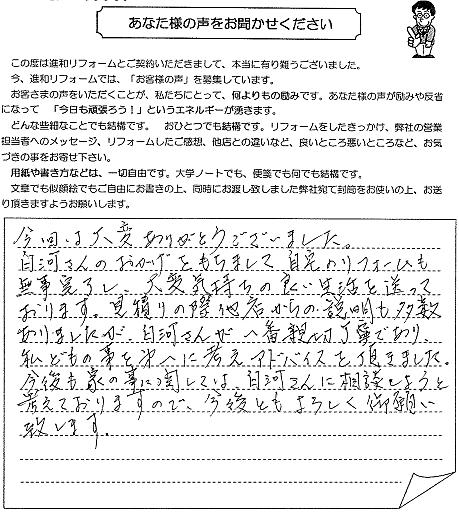 あなた様の声をお聞かせください
この度は進和リフォームとご契約いただきまして、本当に有り難うございました。
今、進和リフォームでは、「お客様の声」を募集しています。
お客さまの声をいただくことが、私たちにとって、何よりもの励みです。あなた様の声が励みや反省
になって 「今日も頑張ろう！」というエネルギーが湧きます。
どんな些細なことでも結構です。 おひとつでも結構です。リフォームをしたきっかけ、弊社の営業
担当者へのメッセージ、リフォームしたご感想、他店との違いなど、良いところ悪いところなど、お気
づきの事をお寄せ下さい。
用紙や書き方などは、一切自由です。大学ノートでも、便箋でも何でも結構です。
文章でも似顔絵でもご自由にお書きの上、同時にお渡し致しました弊社宛て封筒をお使いの上、お送
り頂きますようお願いします。
今回は大変ありがとうございました。
白河さんのおかげをもちまして自宅のリフォームも
無事完了し、大変気持ちの良い生活を送って
おります。見積りの際他店からの説明も多数
ありましたが、白河さんが一番親切丁寧であり、
私どもの事を第一に考えアドバイスを頂きました。
今後も家の事に関しては、白河さんに相談しようと
考えておりますので、今後ともよろしく御願い
致します。